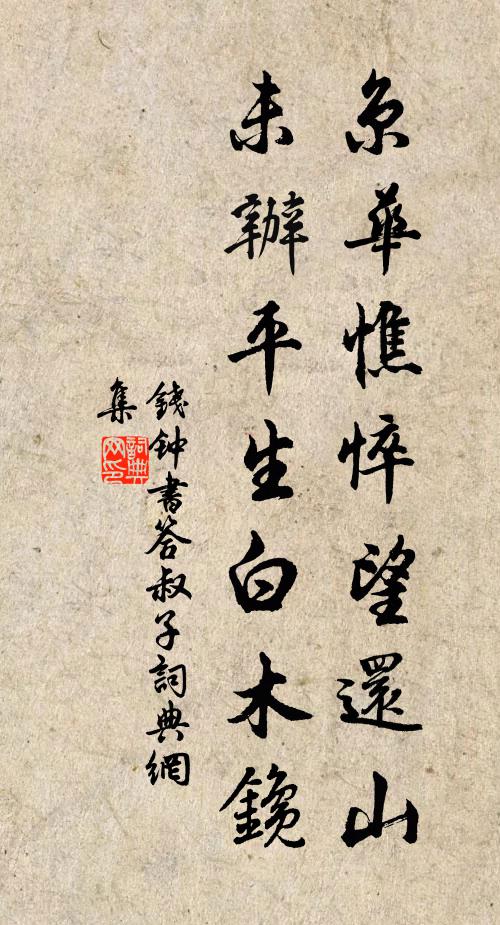 京華憔悴望還山
未辦平生白木鑱
錢钟書答叔子詞典網
集
詞典網印